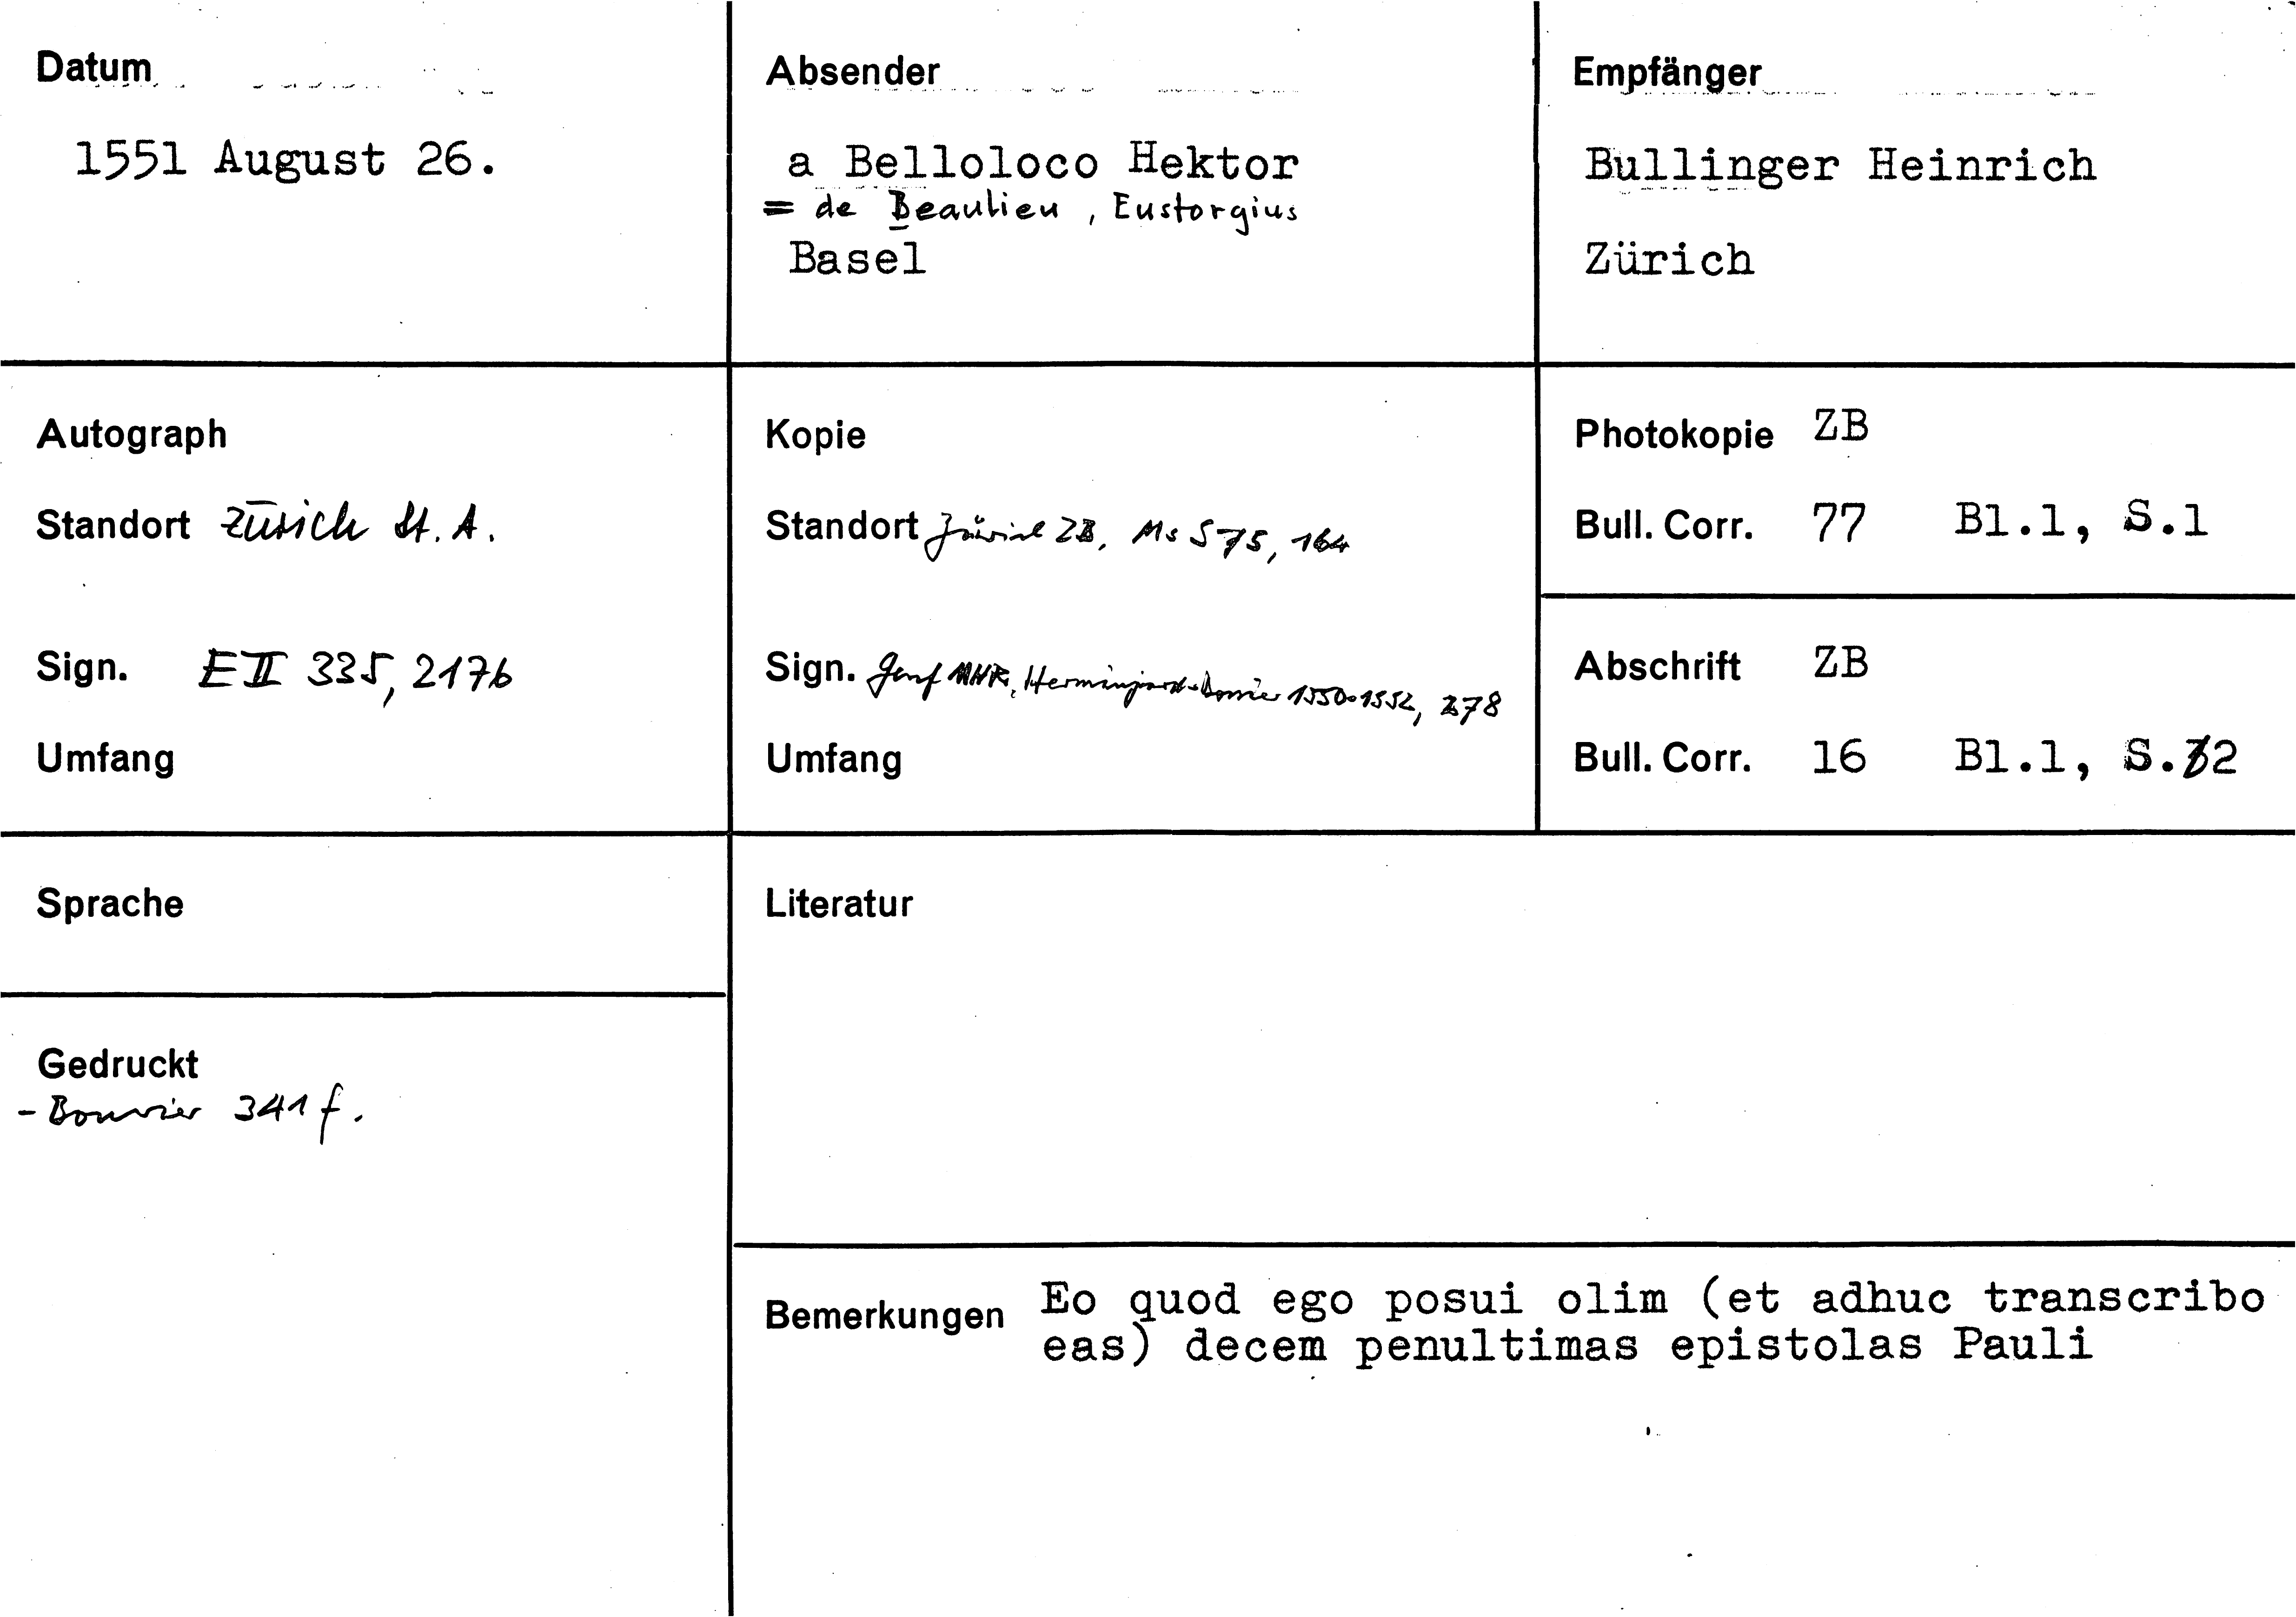 Datum
1551 August 26.
Absender
a Belloloco Hektor
= de Beaulieu, Eustorgius
Basel
Empfänger
Bullinger Heinrich
Zürich
Autograph
Standort Zürich St. A.
Sign. E II 335, 2176
Umfang
Kopie
Standort Zürich ZB, Ms S 75, 164
Sign. Genf MHR, Herminjard-Dossier 1550-1552, 278
Umfang
Photokopie ZB
Bull. Corr. 77 Bl.1, S.1
Abschrift ZB
Bull. Corr. 16 Bl.1, S.2
Sprache
Gedruckt
- Bouvier 341 f.
Literatur
Bemerkungen Eo quod ego posui olim (et adhuc transcribo
eas) decem penultimas epistolas Pauli